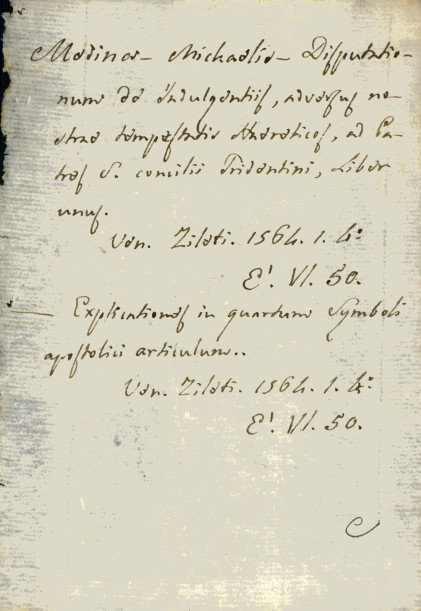 Medinae Michaelis Disputatio-
num de Indulgentiis, adversus no-
strae tempestatis Haereticos, ad Pa-
tres S. concilii Tridentini, Liber
unus.
Ven. Zileti. 1564. 1. 4º
E'. VI. 50.
— Explicationes in quartum Symboli
apostolici articulum..
Ven. Zileti. 1564. 1. 4º:
E'. VI. 50.